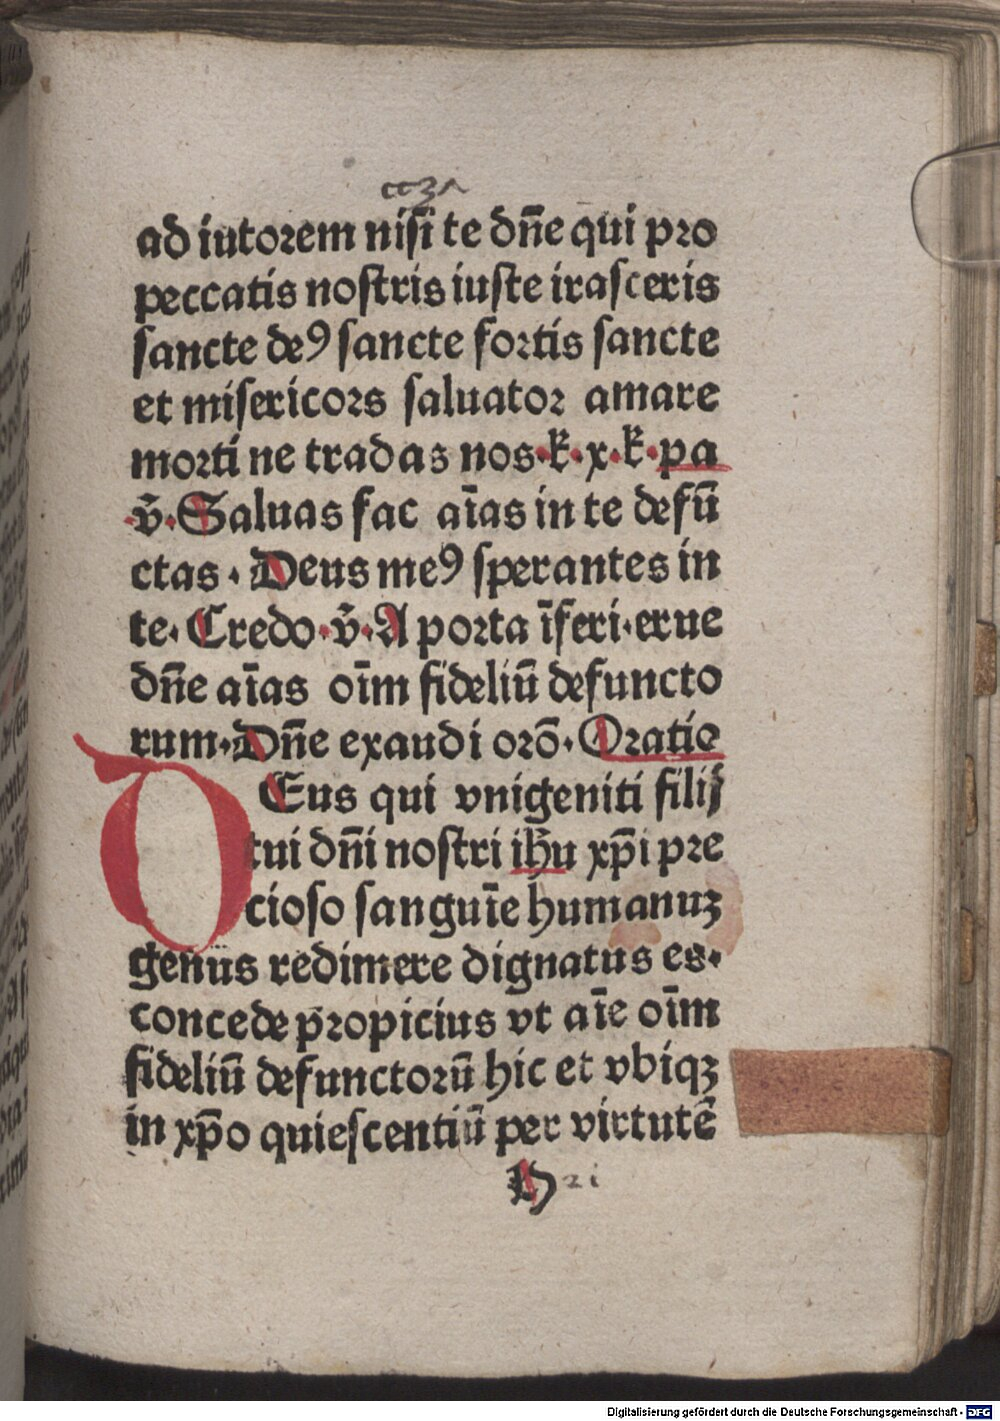 ad iutorem nisi te dn̄e qui pro
peccatis noſtris iuſte iraſceris
ſancte deꝰ ſancte fortis ſancte
et miſericors ſaluator amare
morti ne tradas nos·k̄·x·k̄·pa
·v̄·Saluas fac aīas in te defū
ctas·Deus meꝰ ſperantes in
te·Credo·v̄·A porta īferi·erue
dn̄e aīas oīm fideliū defuncto
rum·Dn̄e exaudi orō·Oratio
DEus qui vnigeniti filij
tui dn̄i noſtri ih̄u xp̄i pre
cioſo ſanguīe humanuꝫ
genus redimere dignatus es·
concede propicius vt aīe oīm
fideliū defunctorū hic et vbiqꝫ
in xp̄o quieſcentiū per virtutē
Digitalisierung gefördert durch die Deutsche Forschungsgemeinschaft - DFG